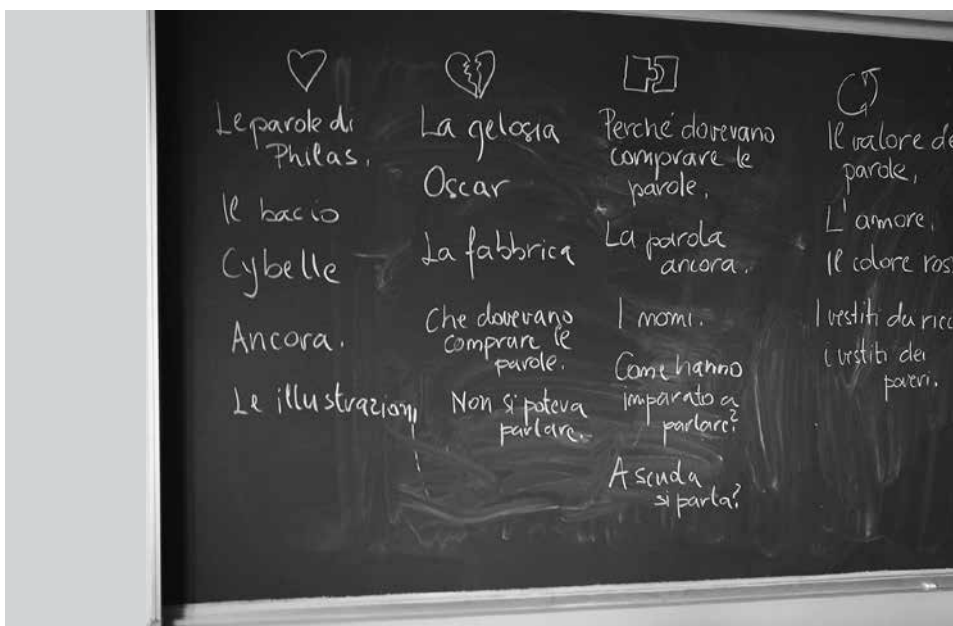 Le parole di
Philas.
Il bacio
Cybelle
Ancora.
Le illustrazioni
La gelosia
Oscar
La fabbrica
Che dovevano
comprare le
parole.
Non si poteva
parlare.
Perché dovevano
comprare le
parole.
La parola
ancora.
I nomi.
Come hanno
imparato a
parlare?
A scuola
si parla?
Il valore de
parole,
L'amore.
Il colore ross
I vestiti da ricc
i vestiti dei
poveri.